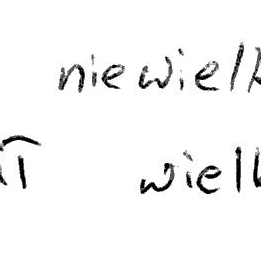 niewielk
wielk